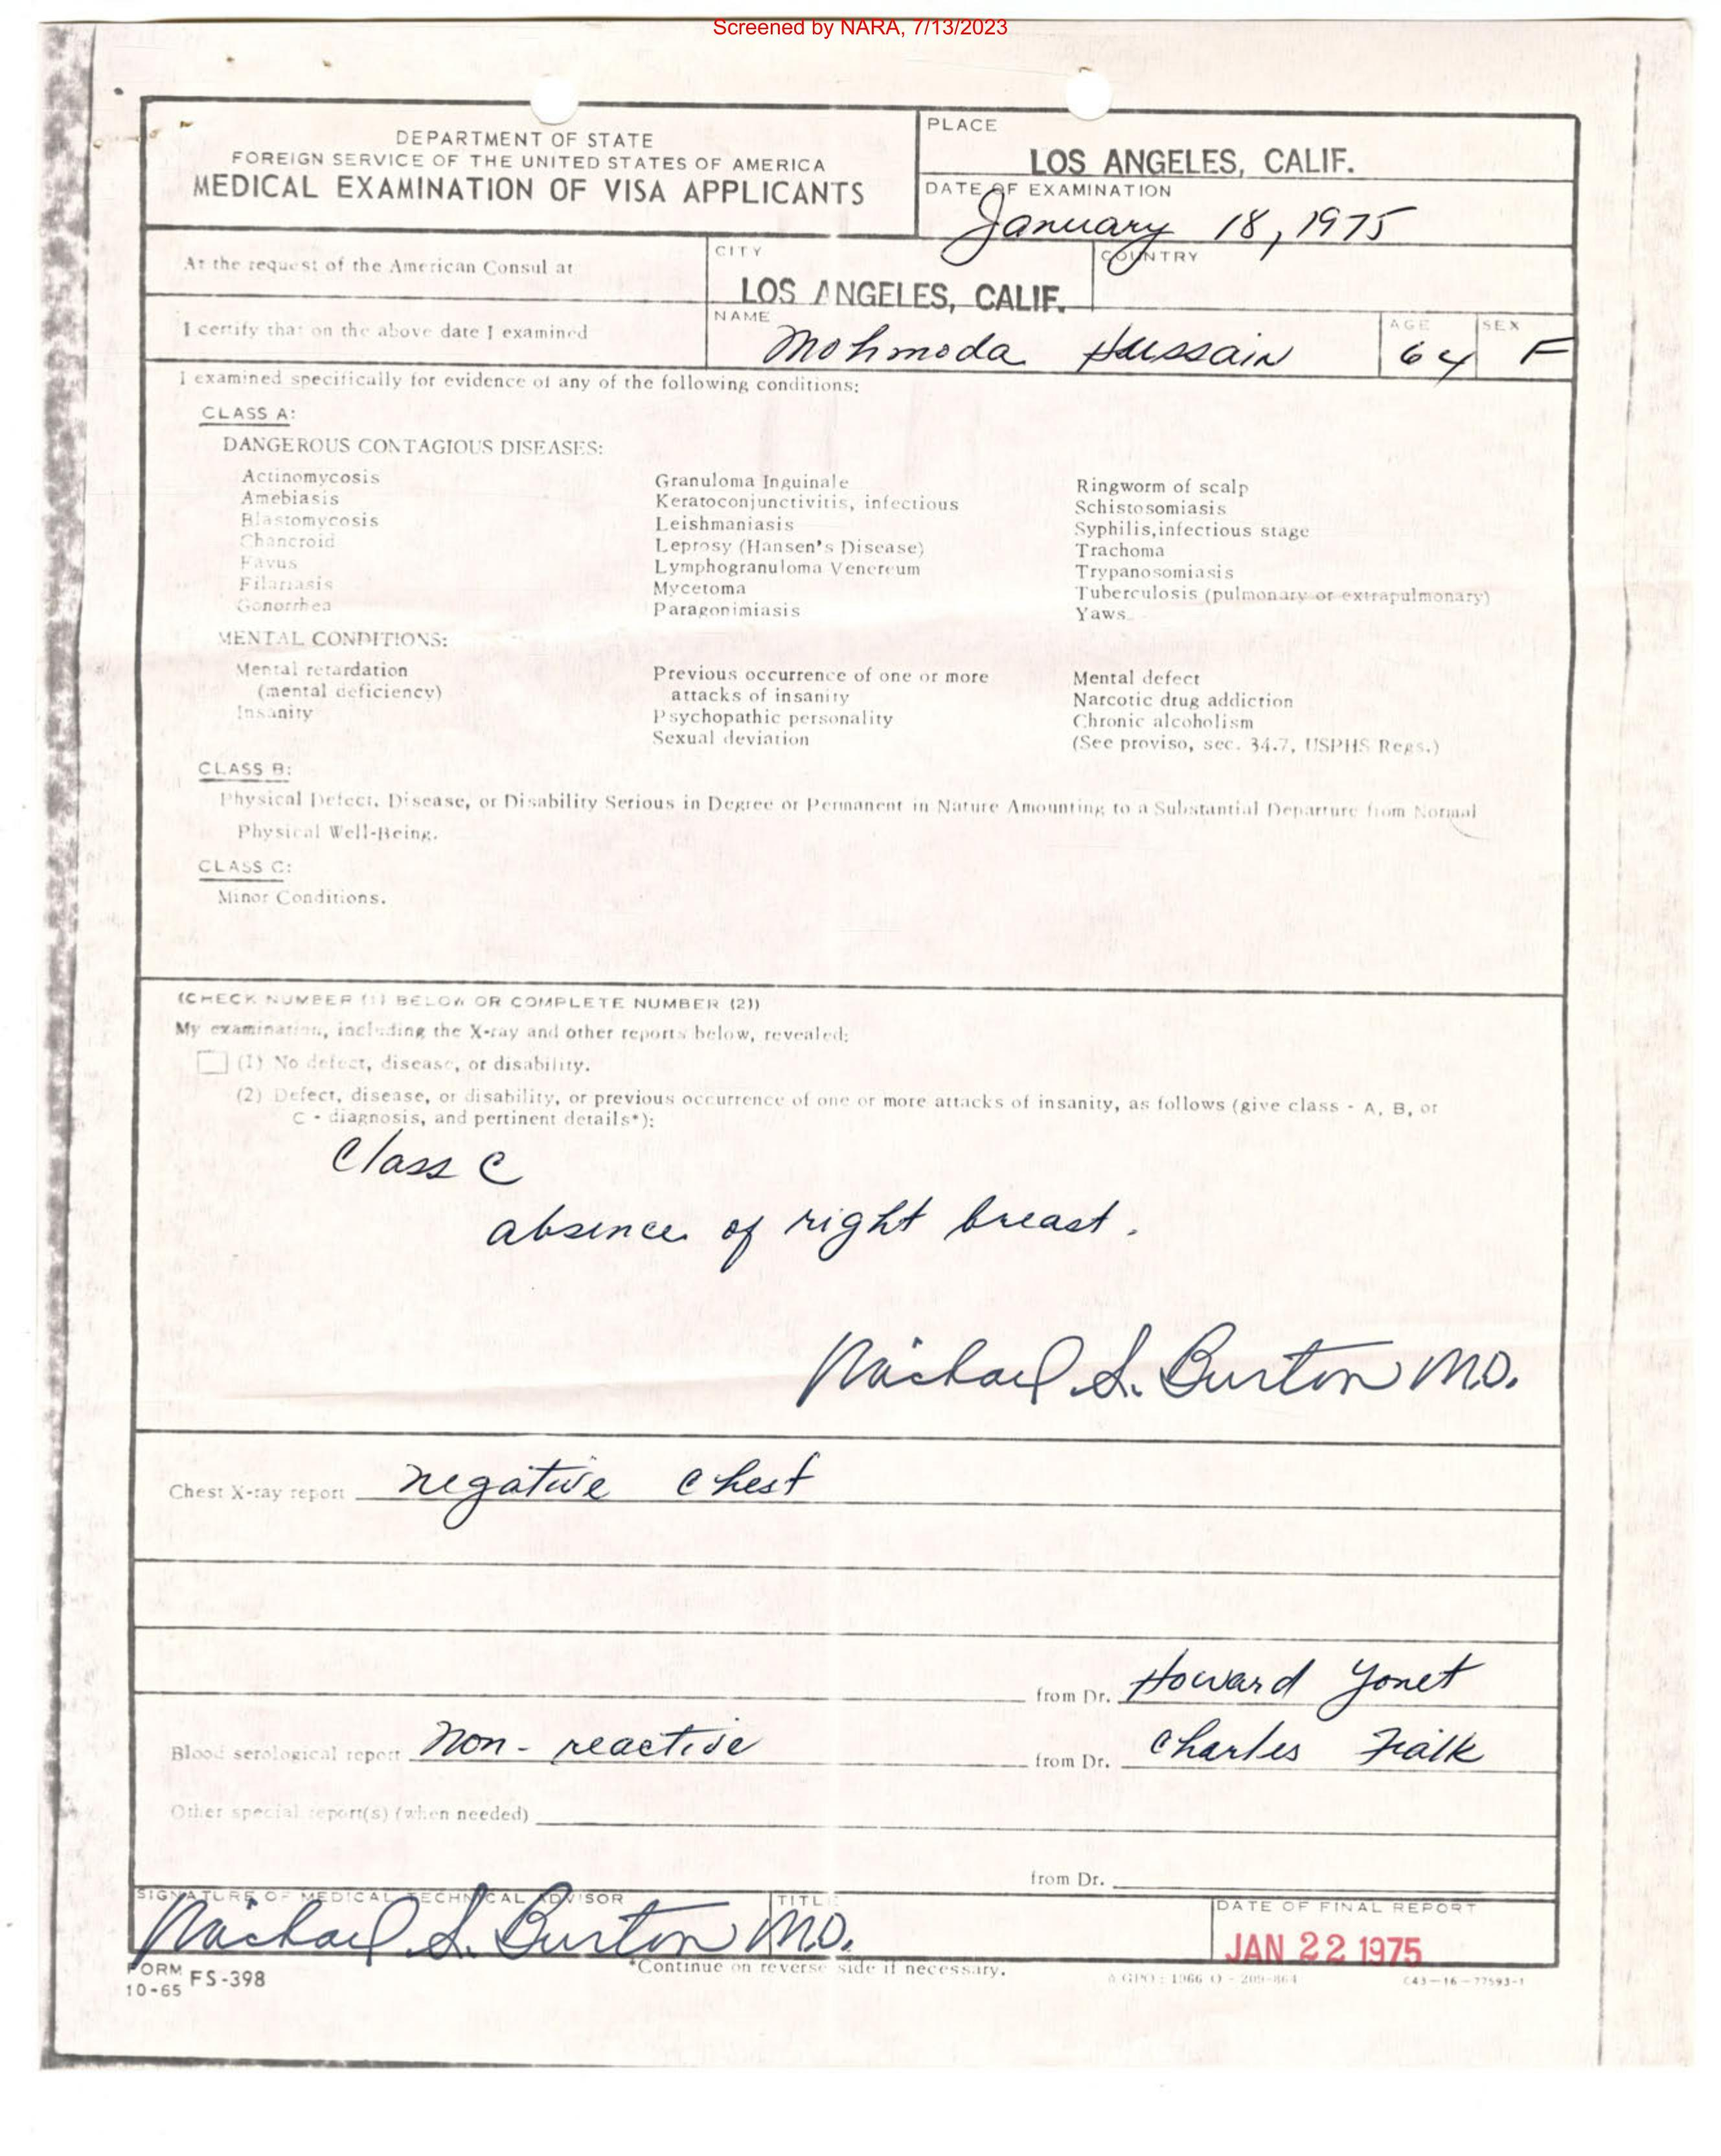 Screened by NARA, 7/13/2023
DEPARTMENT OF STATE
FOREIGN SERVICE OF THE UNITED STATES OF AMERICA
MEDICAL EXAMINATION OF VISA APPLICANTS
PLACE
LOS ANGELES, CALIF.
DATE OF EXAMINATION
January 18, 1975
At the request of the American Consul at
CITY
LOS ANGELES, CALIF.
COUNTRY
I certify that on the above date I examined
NAME
Mohmoda Hussain
AGE
64
SEX
F
I examined specifically for evidence of any of the following conditions:
CLASS A:
DANGEROUS CONTAGIOUS DISEASES:
Actinomycosis
Amebiasis
Blastomycosis
Chancroid
Favus
Filariasis
Gonorrhea
Granuloma Inguinale
Keratoconjunctivitis, infectious
Leishmaniasis
Leprosy (Hansen's Disease)
Lymphogranuloma Venereum
Mycetoma
Paragonimiasis
Ringworm of scalp
Schistosomiasis
Syphilis,infectious stage
Trachoma
Trypanosomiasis
Tuberculosis (pulmonary or extrapulmonary)
Yaws
MENTAL CONDITIONS:
Mental retardation
(mental deficiency)
Insanity
Previous occurrence of one or more
attacks of insanity
Psychopathic personality
Sexual deviation
Mental defect
Narcotic drug addiction
Chronic alcoholism
(See proviso, sec. 34.7, USPHS Regs.)
CLASS B:
Physical Defect, Disease, or Disability Serious in Degree or Permanent in Nature Amounting to a Substantial Departure from Normal
Physical Well-Being.
CLASS C:
Minor Conditions.
(CHECK NUMBER (1) BELOW OR COMPLETE NUMBER (2))
My examination, including the X-ray and other reports below, revealed:
(1) No defect, disease, or disability.
(2) Defect, disease, or disability, or previous occurrence of one or more attacks of insanity, as follows (give class - A, B, or
C - diagnosis, and pertinent details*):
Class C
absence of right breast.
Michael S. Burton M.D.
Chest X-ray report negative chest
from Dr. Howard Yonet
Blood serological report non-reactive from Dr. Charles Fialk
Other special report(s) (when needed)
from Dr.
SIGNATURE OF MEDICAL TECHNICAL ADVISOR
Michael S. Burton M.D.
TITLE
DATE OF FINAL REPORT
JAN 22 1975
FORM FS-398
10-65
*Continue on reverse side if necessary.
GPO : 1966 O - 209-864
C43-16-77593-1